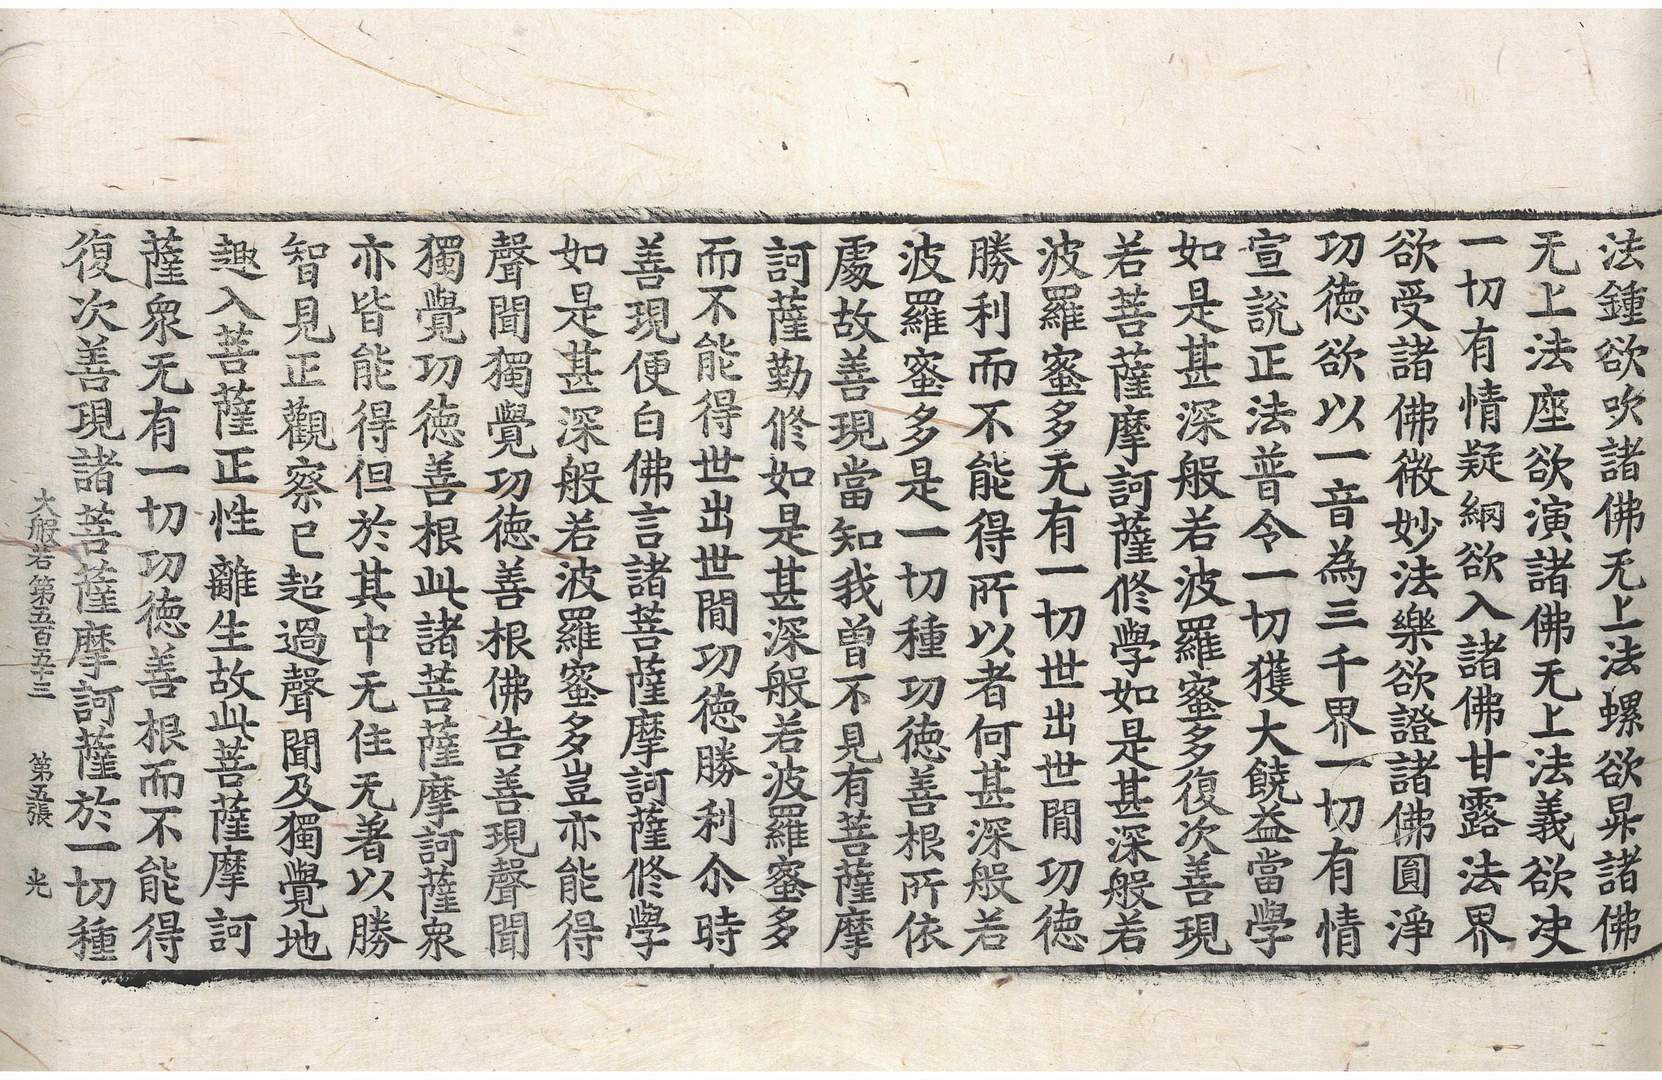 法鍾欲吹諸佛无上法螺欲昇諸佛
无上法座欲演諸佛无上法義欲决
一切有情疑網欲入諸佛甘露法界
欲受諸佛微妙法樂欲證諸佛圓淨
功徳欲以一音為三千界一切有情
宣說正法普令一切獲大饒益當學
如是甚深般若波羅蜜多復次善現
若菩薩摩訶薩修學如是甚深般若
波羅蜜多无有一切世出世間功徳
勝利而不能得所以者何甚深般若
波羅蜜多是一切種功徳善根所依
處故善現當知我曾不見有菩薩摩
訶薩勤修如是甚深般若波羅蜜多
而不能得世出世間功徳勝利尒時
善現便白佛言諸菩薩摩訶薩修學
如是甚深般若波羅蜜多豈亦能得
聲聞獨覺功徳善根佛告善現聲聞
獨覺功徳善根此諸菩薩摩訶薩衆
亦皆能得但於其中无住无著以勝
智見正觀察已超過聲聞及獨覺地
趣入菩薩正性離生故此菩薩摩訶
薩衆无有一切功徳善根而不能得
復次善現諸菩薩摩訶薩於一切種
大般若第五百五十三 第五張 光